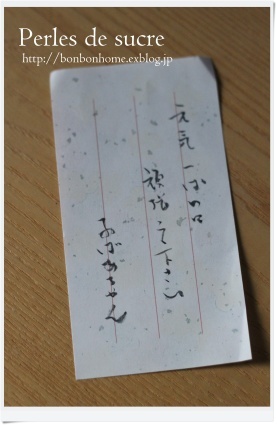 Perles de sucre
http://bonbonhome.exblog.jp
元気一ぱい
頑張って下さい
おばあちゃん